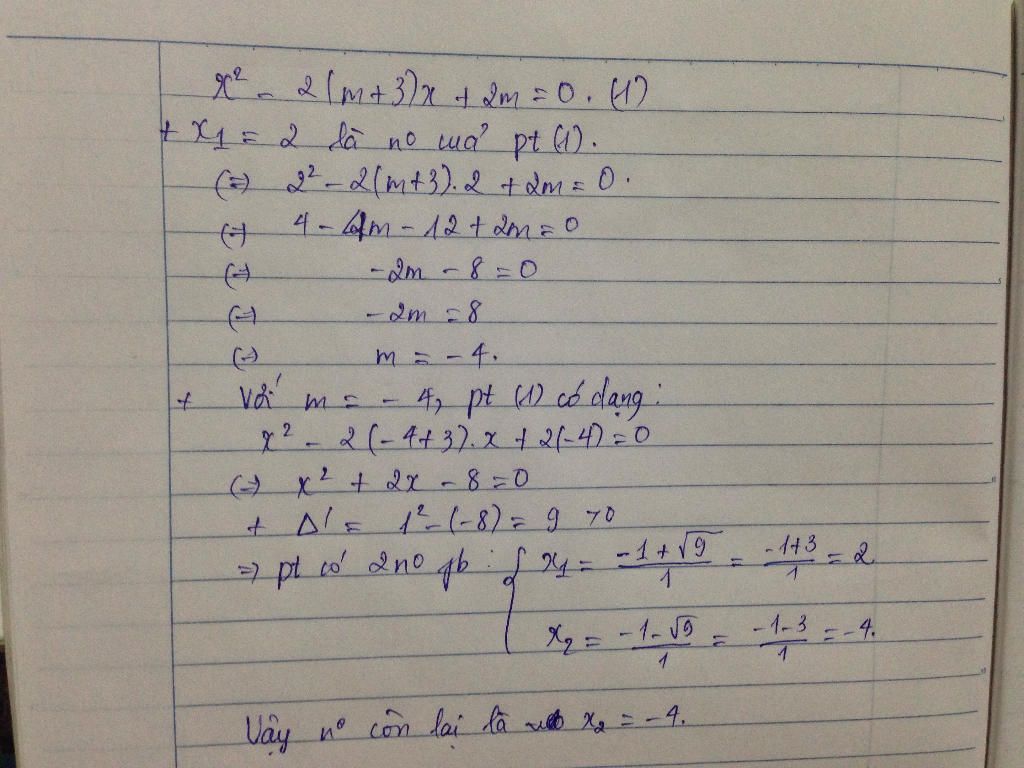 x² - 2(m+3)x + 2m = 0. (1)
+ x₁ = 2 là n° của pt (1).
(=) 2² - 2(m+3).2 + 2m = 0.
(=) 4 - 4m - 12 + 2m = 0
(=) -2m - 8 = 0
(=) -2m = 8
(=) m = -4.
+ Với m = -4, pt (1) có dạng:
x² - 2(-4+3).x + 2(-4) = 0
(=) x² + 2x - 8 = 0
+ Δ' = 1² - (-8) = 9 > 0
=> pt có 2 n° pb: { x₁ = (-1+√9)/1 = (-1+3)/1 = 2
x₂ = (-1-√9)/1 = (-1-3)/1 = -4.
Vậy n° còn lại là x₂ = -4.